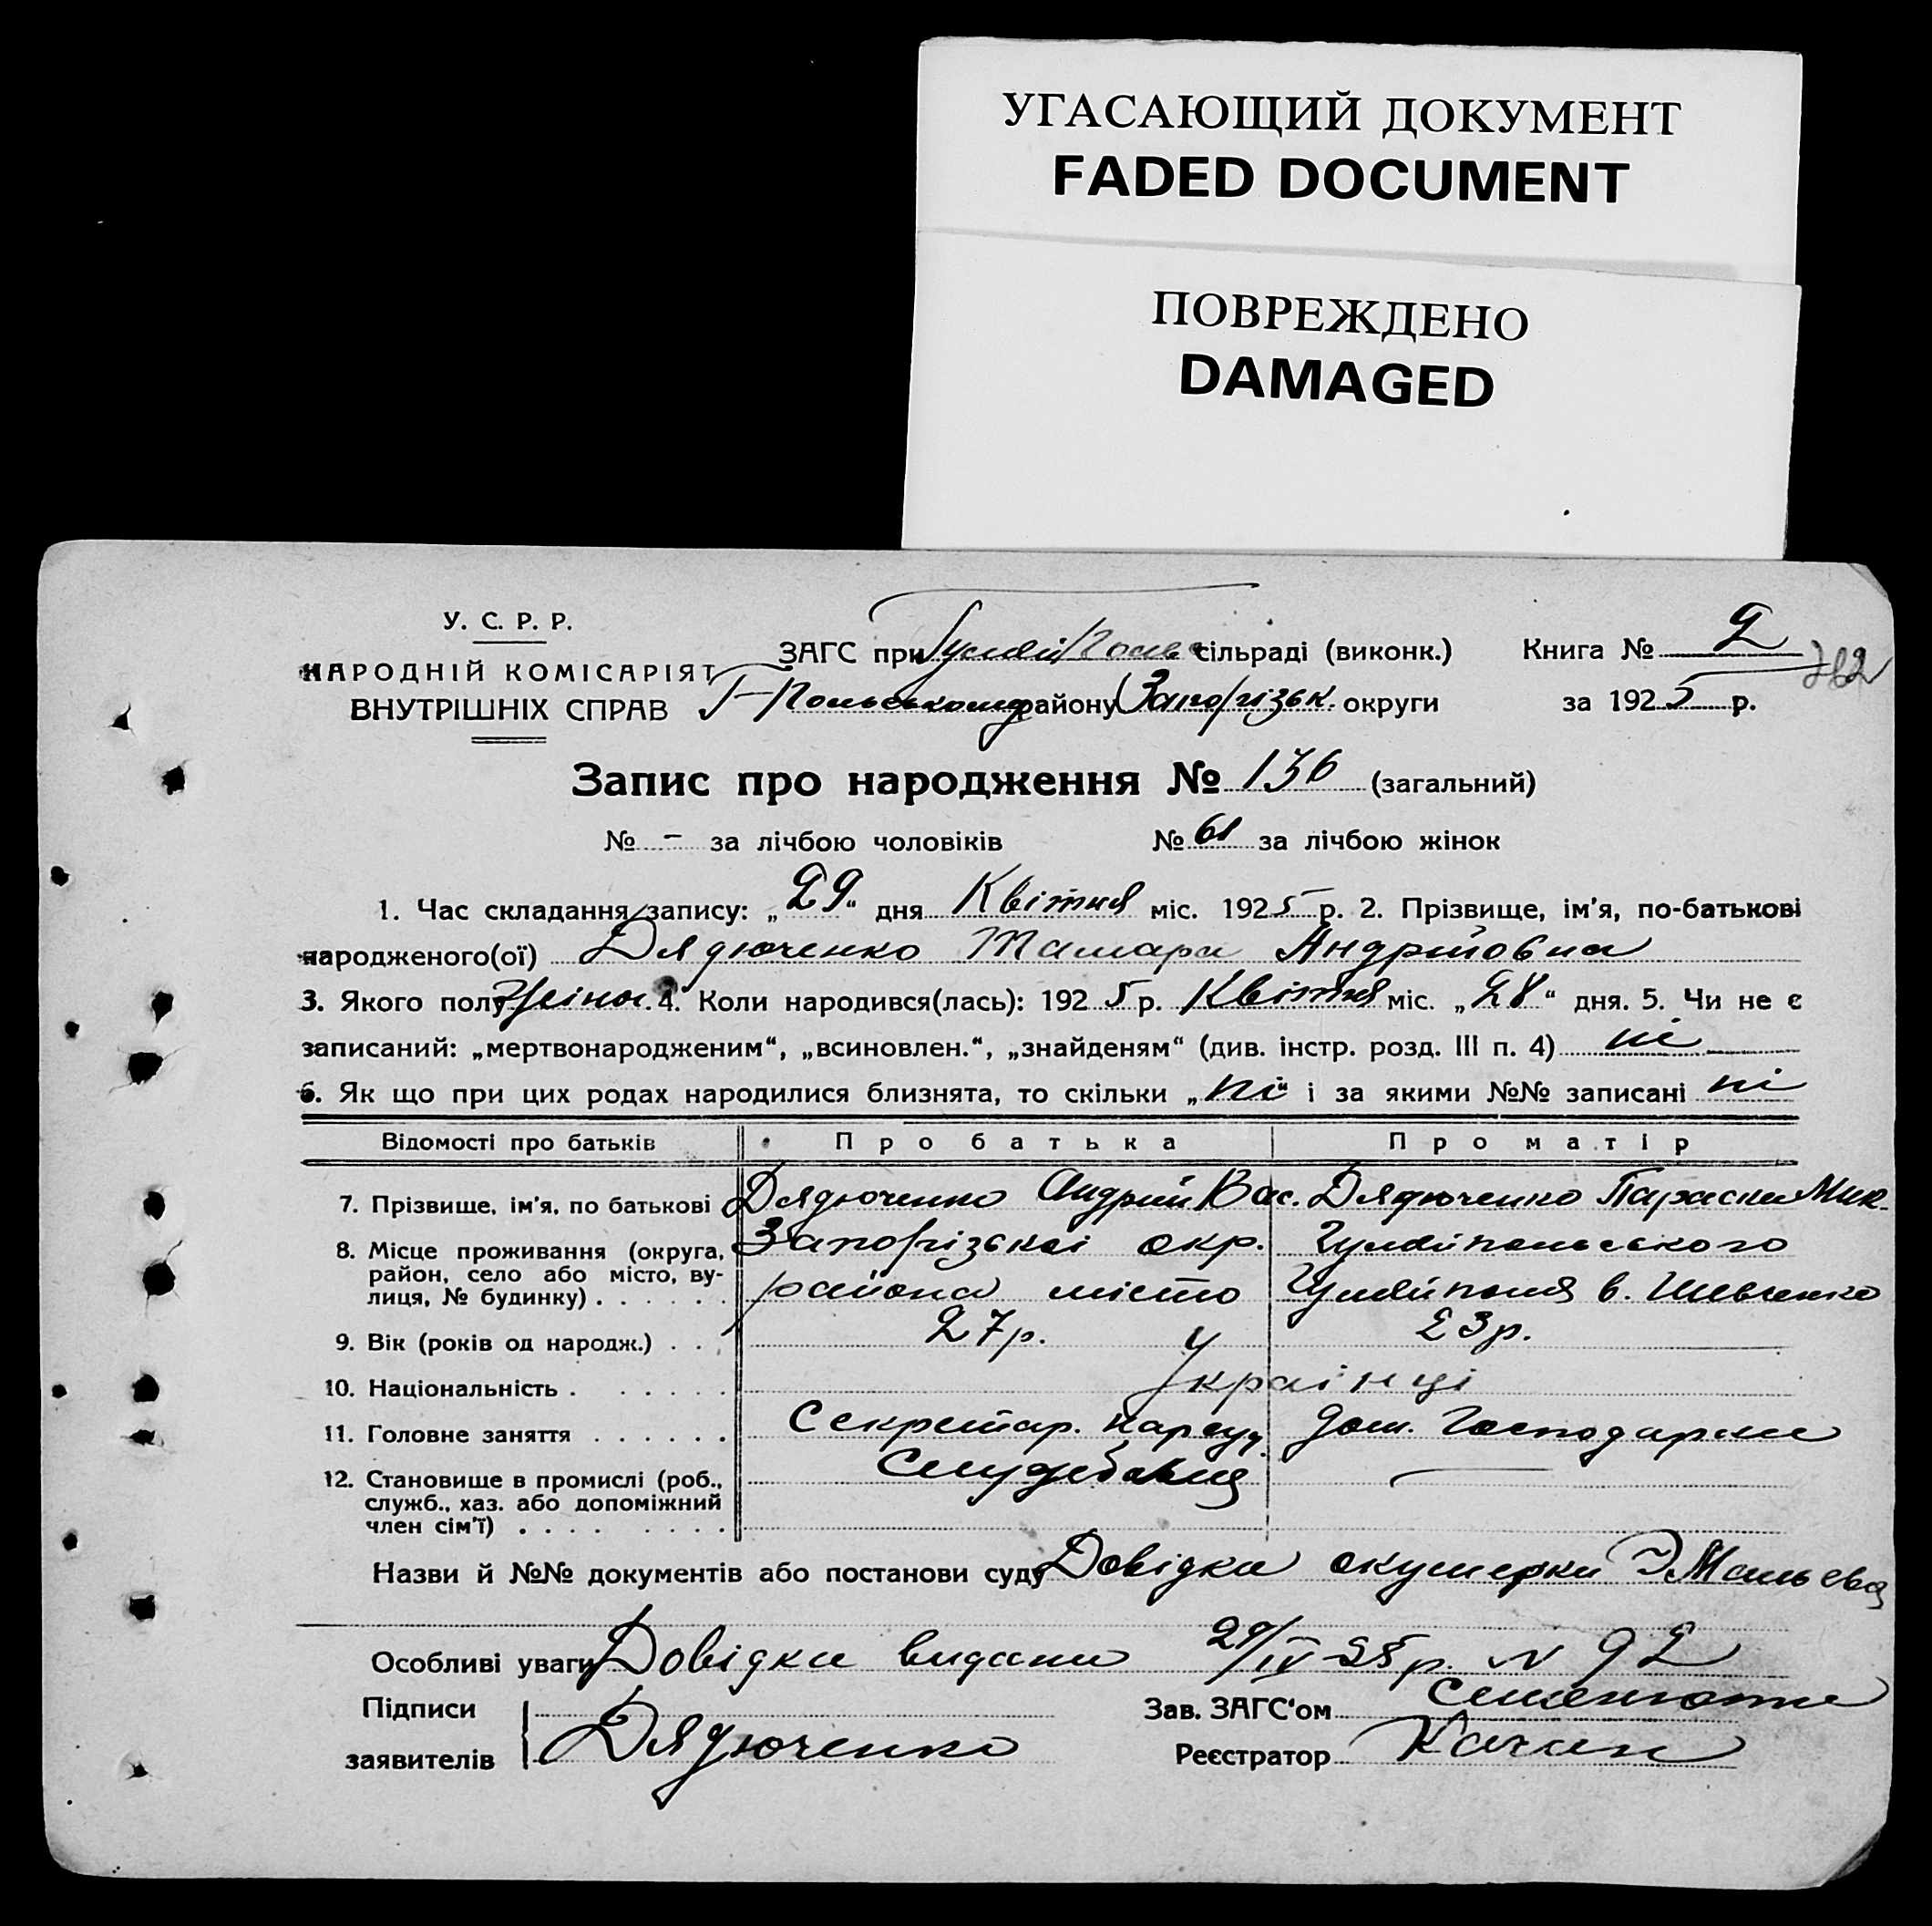 УГАСАЮЩИЙ ДОКУМЕНТ
FADED DOCUMENT
ПОВРЕЖДЕНО
DAMAGED
У. С. Р. Р.
НАРОДНІЙ КОМІСАРІЯТ
ВНУТРІШНІХ СПРАВ
ЗАГС при Гуляй Поль сільраді (виконк.)
Г-Польському району Запорізьк. округи
Книга № 2
за 1925 р.
Запис про народження № 136 (загальний)
№ - за лічбою чоловіків № 61 за лічбою жінок
1. Час складання запису: „29“ дня Квітня міс. 1925 р. 2. Прізвище, ім'я, по-батькові
народженого(ої) Дядюченко Тамара Андріївна
3. Якого полу Жіноч. 4. Коли народився(лась): 1925 р. Квітня міс. „28“ дня. 5. Чи не є
записаний: „мертвонародженим“, „всиновлен.“, „знайденям“ (див. інстр. розд. III п. 4) ні
6. Як що при цих родах народилися близнята, то скільки „ні“ і за якими №№ записані ні
Відомості про батьків Про батька Про матір
7. Прізвище, ім'я, по батькові Дядюченко Андрій Вас. Дядюченко Параска Мик.
8. Місце проживання (округа, Запорізькоі окр. Гуляйпольського
район, село або місто, ву-
лиця, № будинку) . . . . . . района місто Гуляйполя в. Шевченко
9. Вік (років од народж.) . . . 27р. 23р.
10. Національність . . . . . . Украінці
11. Головне заняття . . . . . . Секретар. нарсуд. Дом. Господарка
12. Становище в промислі (роб., Службовець
служб., хаз. або допоміжний
член сім'ї) . . . . . . . .
Назви й №№ документів або постанови суду Довідка акушерки
Особливі уваги Довідка видана 29/IV-25р. N 92
Підписи
заявителів Дядюченко
Зав. ЗАГС'ом
Реєстратор Качан